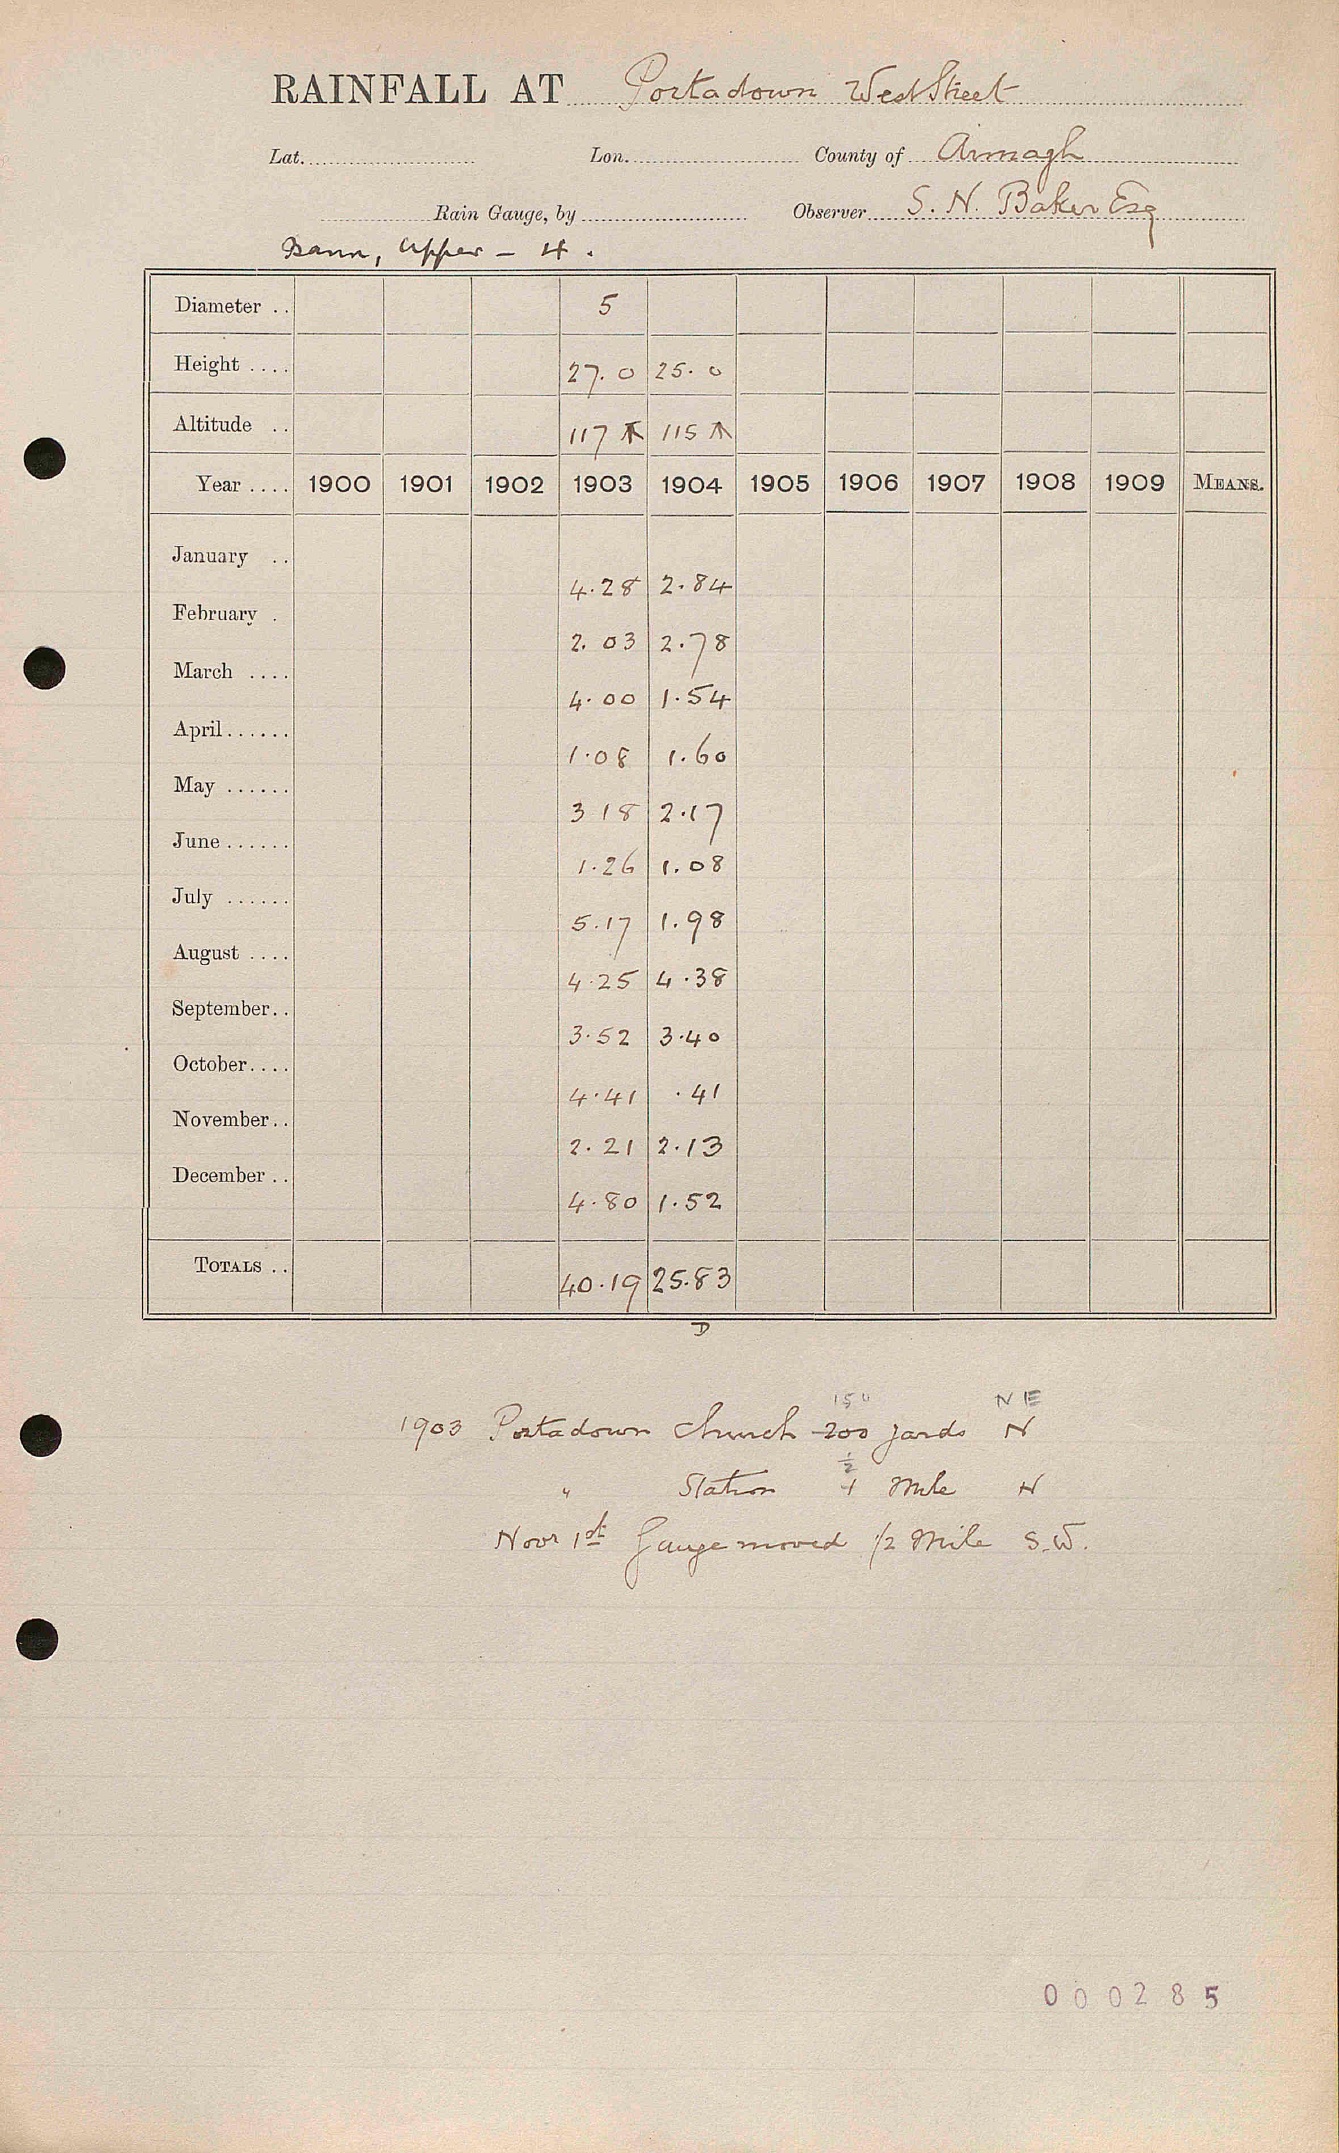 RAINFALL AT Portadown West Street
Lat. Lon. County of Armagh
Rain Gauge, by Observer S. N. Baker Esq
Bann, Upper - 4.
Diameter .. 5
Height .... 27.0 25.0
Altitude .. 117 115
Year .... 1900 1901 1902 1903 1904 1905 1906 1907 1908 1909 MEANS.
January .. 4.28 2.84
February . 2.03 2.78
March .... 4.00 1.54
April...... 1.08 1.60
May ...... 3 18 2.17
June ...... 1.26 1.08
July ...... 5.17 1.98
August .... 4.25 4.38
September.. 3.52 3.40
October.... 4.41 .41
November.. 2.21 2.13
December .. 4.80 1.52
TOTALS .. 40.19 25.83
D
150 NE
1903 Portadown Church 200 yards N
1/2
" Station Mile N
Novr 1st Gauge moved 1/2 Mile S.W.
000285